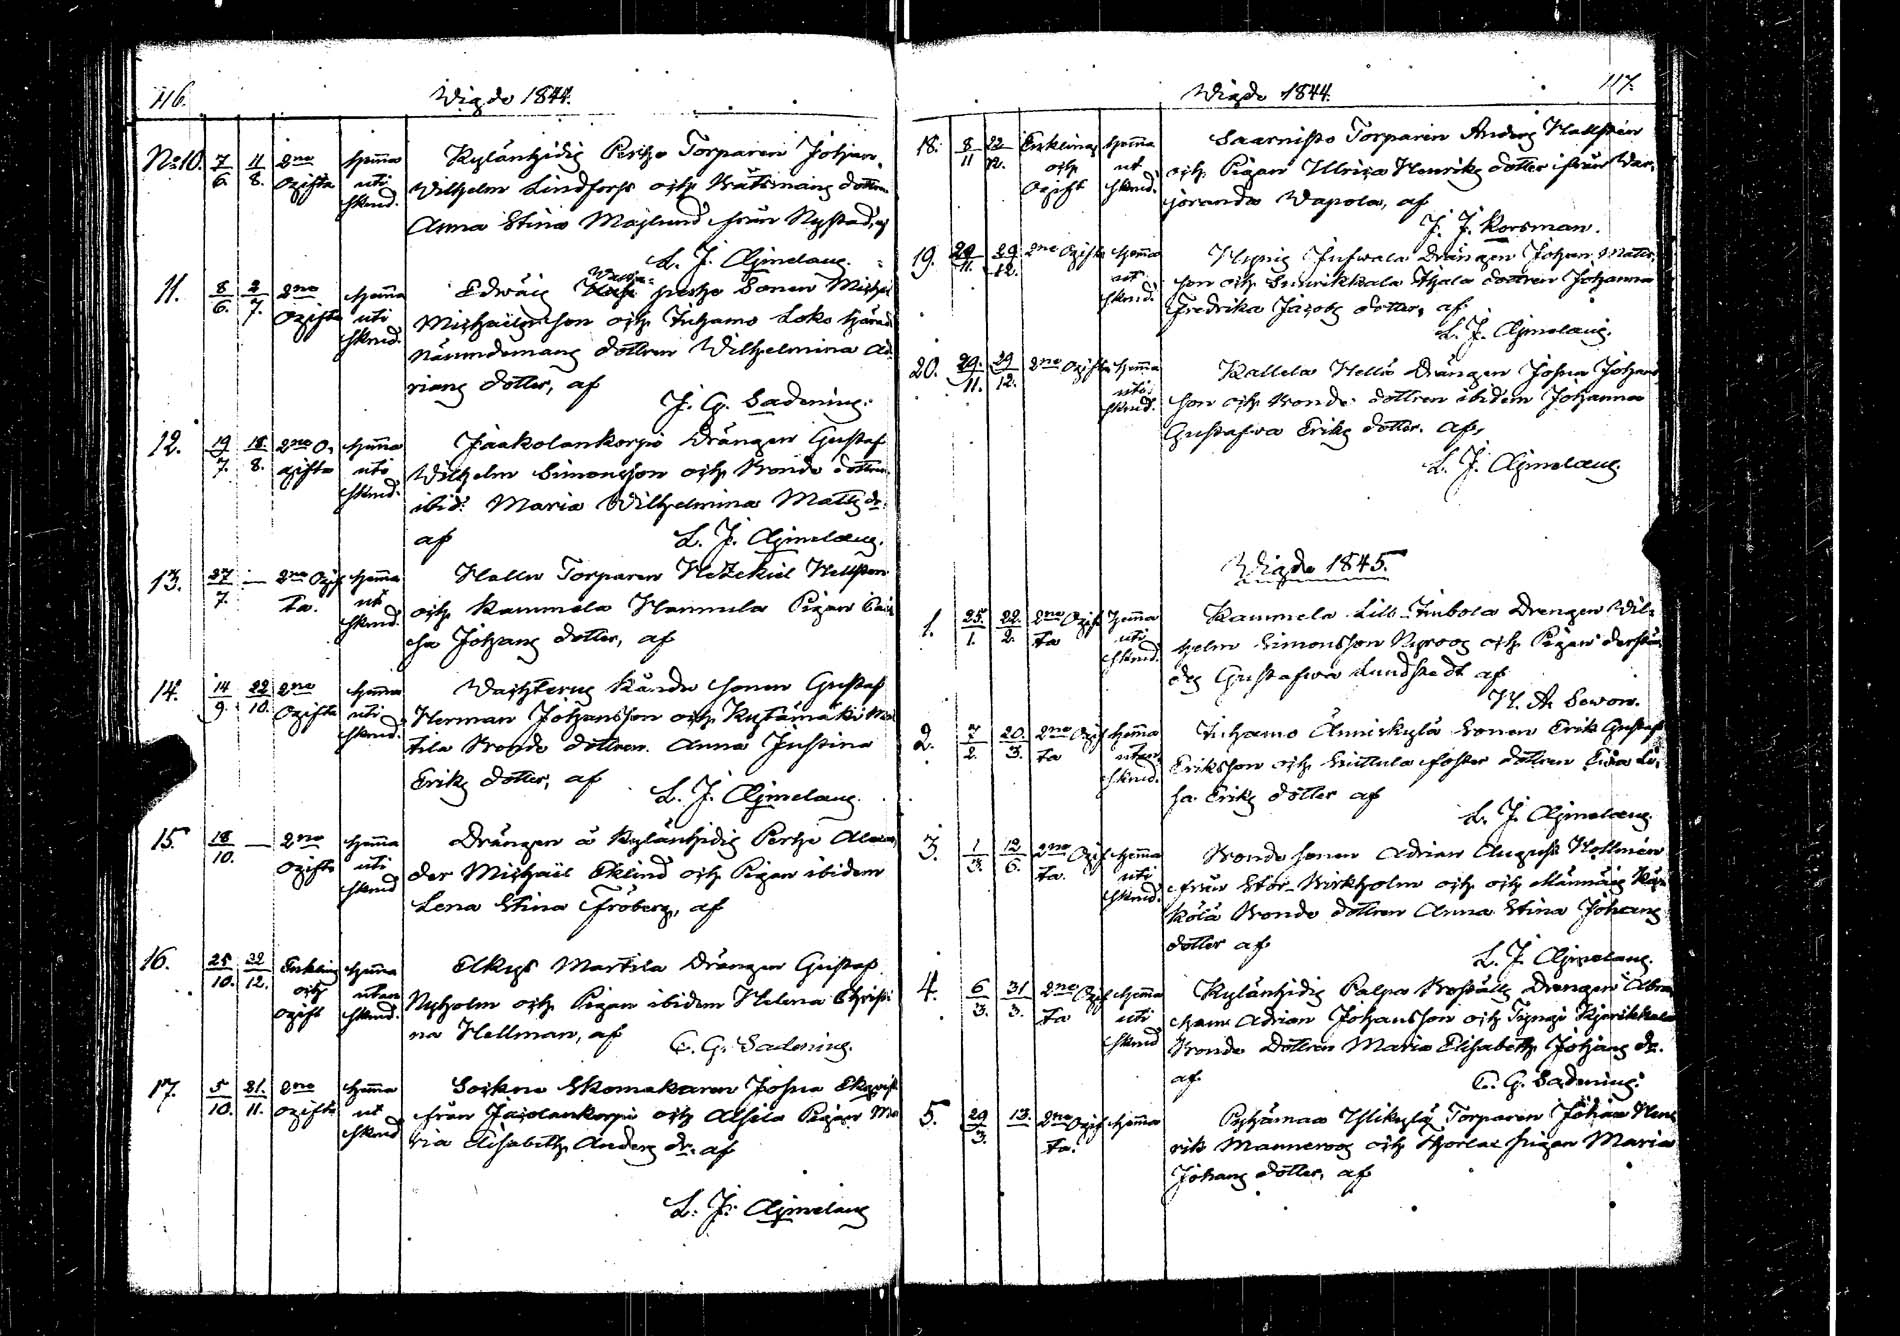 116.
Wigde 1844.
No 10. 7/6. 11/8. 2ne Ogifta hemma uti sknd. Kyläntidis Pertze Torparen Johan
Wilhelm Lindforss och Båtsmans dottren
Anna Stina Maslund från Nystad, af
L. J. Ajmelaeus.
11. 8/6. 2/7. 2ne Ogifta hemma uti sknd. Edwäis Sonen Michel
Michaelsson och Juhamo Loko härads
nämndemans dottren Wilhelmina Ad
rians dotter, af
J. G. Sadenius.
12. 19/7. 18/8. 2ne O- gifta hemma uti sknd. Jaakolankorpi Drängen Gustaf
Wilhelm Simonsson och Bonde dottren
ibid: Maria Wilhelmina Matts dr.
af
L. J. Ajmelaeus.
13. 27/7. — 2ne Ogif ta. hemma ut sknd. Hallu Torparen Hezekiel Hellsten
och Kammela Hannula Pigan Cai
sa Johans dotter, af
14. 14/9. 22/10. 2ne Ogifta hemma uti sknd. Bonde sonen Gustaf
Herman Johansson och Kytämäki Mar
tila Bonde dottren Anna Justina
Eriks dotter, af
L. J. Ajmelaeus.
15. 18/10. — 2ne Ogifta hemma uti sknd Drängen å Kyläntidis Pertze Alexan
der Michäel Eklind och Pigan ibidem
Lena Stina Fröberg, af
16. 25/10. 12. Enkling och Ogift hemma utan sknd. Elkys Martila Drängen Gustaf
Nyholm och Pigan ibidem Helena Christi
na Hellman, af
C. G. Sadenius.
17. 5/10. 21./11. 2ne Ogifta hemma ut sknd Sockne Skomakaren Josua Ekqvist
från Jacolankorpi och Alsila Pigan Ma
ria Elisabeth Anders dr. af
L. J. Ajmelaeus
117.
Wigde 1844.
18. 8/11 22/12. Enkling och Ogift hemma ut sknd. Saarnisto Torparen Anders Hallsten
och Pigan Ulrica Henriks dotter från War-
jaranda Wapola, af
J. J. Korsman.
19. 29/11. 29/12. 2ne Ogifta hemma ut sknd. Drängen Johan Matts-
son och dottren Johanna
Fredrika Jacobs dotter, af
L. J. Ajmelaeus.
20. 29./11. 29/12. 2ne Ogifta hemma uti sknd. Kallela Hellä Drängen Josua Johans
son och Bonde dottren ibidem Johanna
Gustafwa Eriks dotter. af,
L. J. Ajmelaeus.
Wigde 1845.
1. 25./1. 22./2. 2ne Ogif ta hemma uti sknd. Kammela Lill-Jinbola Drengen Wil-
helm Simonsson Nyroos och Pigan derstä
des Gustafwa Lundstedt af
H. A. Sewon.
2. 7/2. 20./3. 2ne Ogif ta hemma utan sknd. Juhamo Änniskylä Sonen Erik Gustaf
Eriksson och foster dottren Ewa Li-
sa Eriks dotter af
L. J. Ajmelaeus.
3. 1/3. 12/6. 2ne Ogif ta. hemma uti sknd. Bonde sonen Adrian August Hollmén
från Stor-Birkholm och och Männäis Kär
kölä Bonde dottren Anna Stina Johans
dotter af.
L. J. Ajmelaeus.
4. 6/3. 31/3. 2ne Ogif ta hemma uti sknd Kyläntidis Palpa Drengen Abra
ham Adrian Johansson och
Bonde Dottren Maria Elisabeth Johans dr.
af.
C. G. Sadenius.
5. 29/3. 13. 2ne Ogif ta. hemma Pyhämaa Ylikylä Torparen Johan Hen
rik Manneroos och pigan Maria
Johans dotter, af